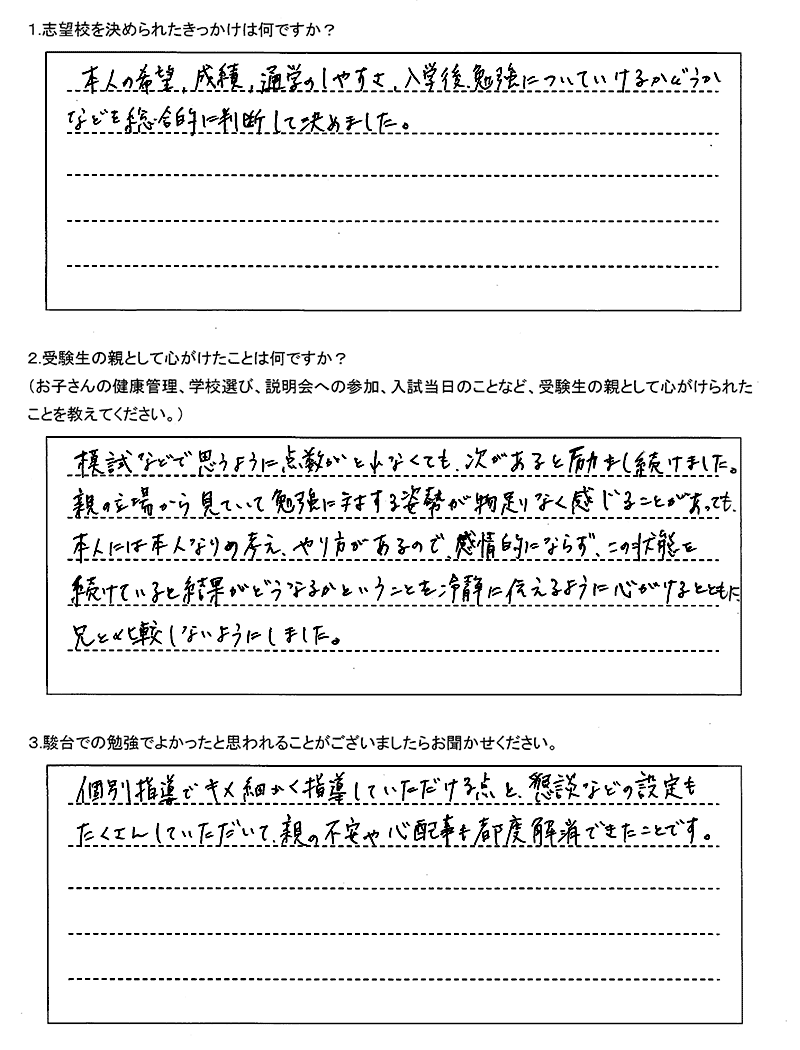 1.志望校を決められたきっかけは何ですか？
本人の希望,成績,通学のしやすさ、入学後、勉強についていけるかどうか
などを総合的に判断して決めました。
2.受験生の親として心がけたことは何ですか？
（お子さんの健康管理、学校選び、説明会への参加、入試当日のことなど、受験生の親として心がけられた
ことを教えてください。）
模試などで思うように点数がとれなくても、次があると励まし続けました。
親の立場から見ていて勉強に対する姿勢が物足りなく感じることがあっても、
本人には本人なりの考え、やり方があるので、感情的にならず、この状態を
続けていると結果がどうなるかということを冷静に伝えるように心がけるとともに
兄と比較しないようにしました。
3.駿台での勉強でよかったと思われることがございましたらお聞かせください。
個別指導でキメ細かく指導していただける点と、懇談などの設定も
たくさんしていただいて、親の不安や心配事も都度解消できたことです。